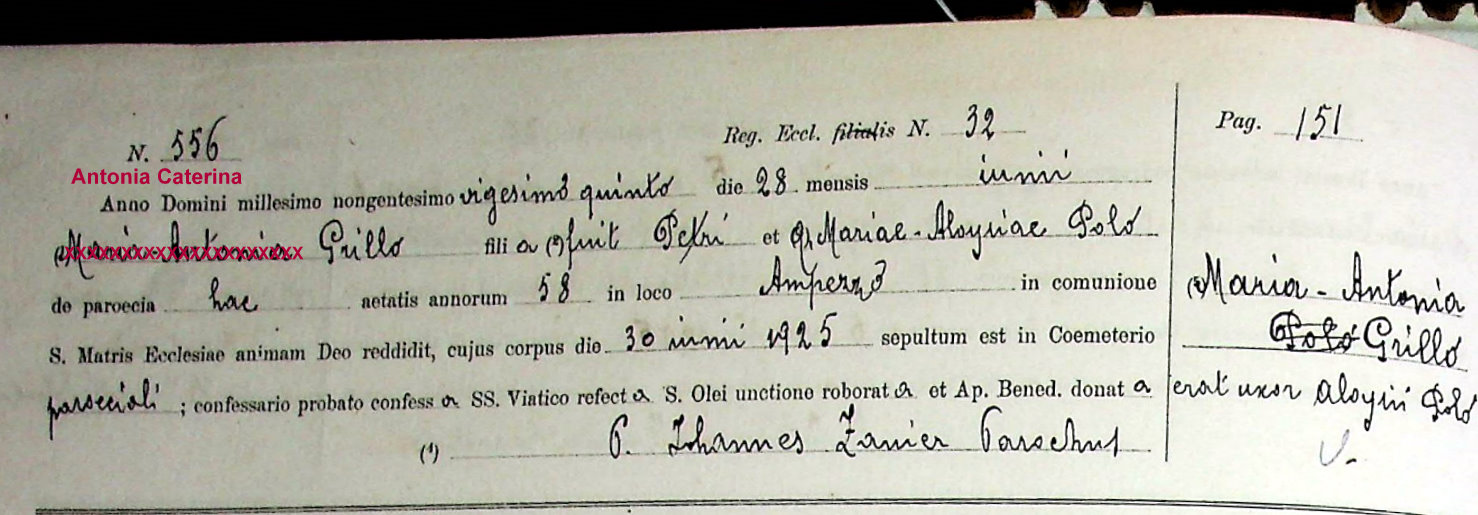 N. 556
Reg. Eccl. filialis N. 32
Pag. 151
Antonia Caterina
Anno Domini millesimo nongentesimo vigesimo quinto die 28 mensis iunii
Maria Antonia Grillo fili a (2) fuit Petri et q. Mariae-Aloysiae Polo
de paroecia hac aetatis annorum 58 in loco Ampezzo in comunione
S. Matris Ecclesiae animam Deo reddidit, cujus corpus die 30 iunii 1925 sepultum est in Coemeterio
paroeciali ; confessario probato confess a SS. Viatico refect a S. Olei unctione roborat a et Ap. Bened. donat a
(1) P. Iohannes Zanier Parochus
Maria-Antonia
Polo Grillo
erat uxor Aloysii Polo